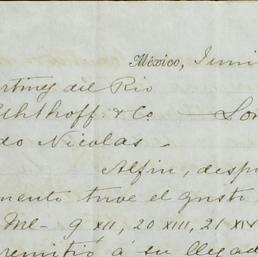 México, Juni
rtinez del Rio
chthoff. & Co. — Lon
do Nicolas —
Alfin, despu
mento tuve el gusto
Me- 9 XII, 20 XIII, 21 XIV
remitió á su llegad